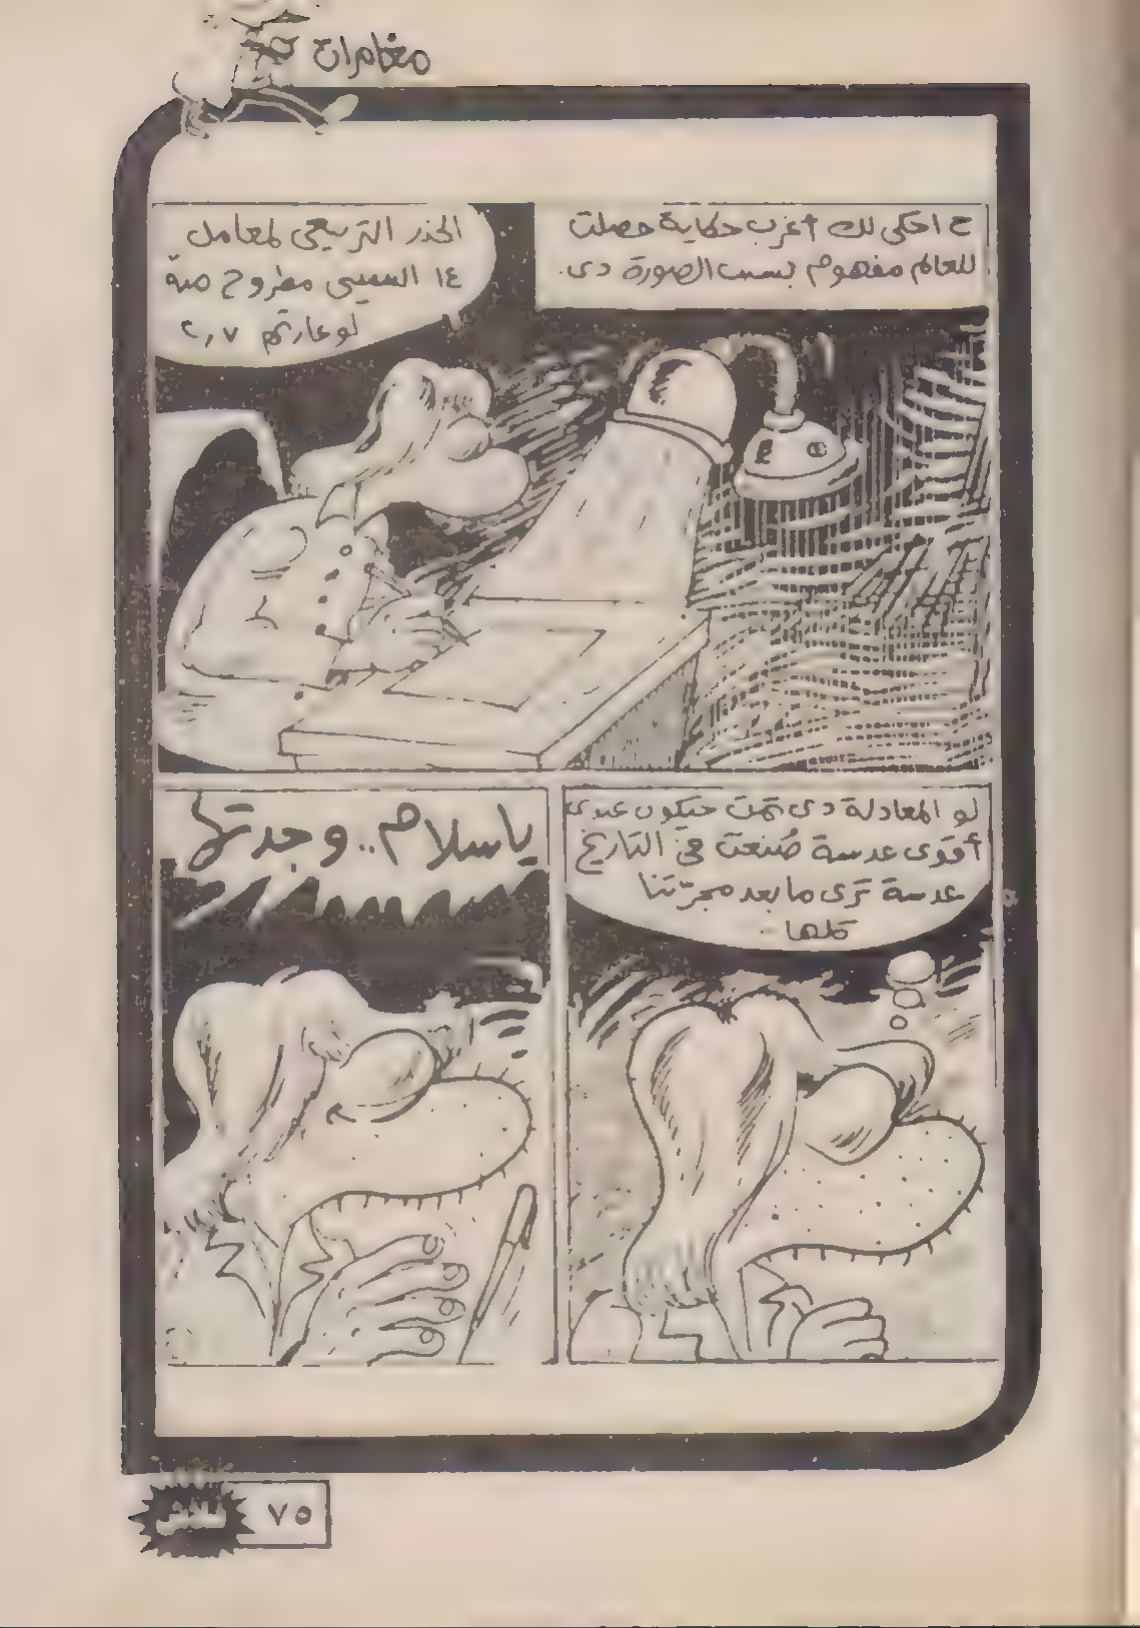 مغامرات
ح احكى لك أغرب حكاية حصلت
للعالم مفهوم بسبب الصورة دى.
الجذر التربيعى لمعامل
١٤ السينى مطروح منه
لو غارتم ٢,٧
لو المعادلة دى تمت حيكون عندى
أقوى عدسة صُنعت فى التاريخ
عدسة ترى ما بعد مجرّتنا
كلها
يا سلام.. وجدتها
٧٥
فلاش